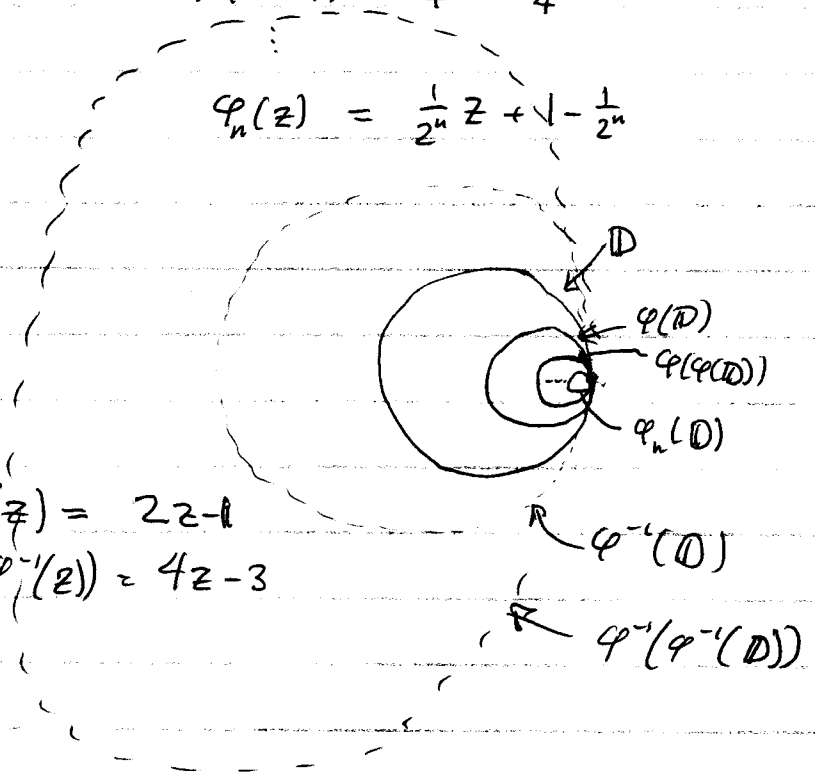 φₙ(z) = 1/2ⁿ z + 1 - 1/2ⁿ
𝔻
φ(𝔻)
φ(φ(𝔻))
φₙ(𝔻)
z) = 2z-1
φ⁻¹(z)) = 4z-3
φ⁻¹(𝔻)
φ⁻¹(φ⁻¹(𝔻))